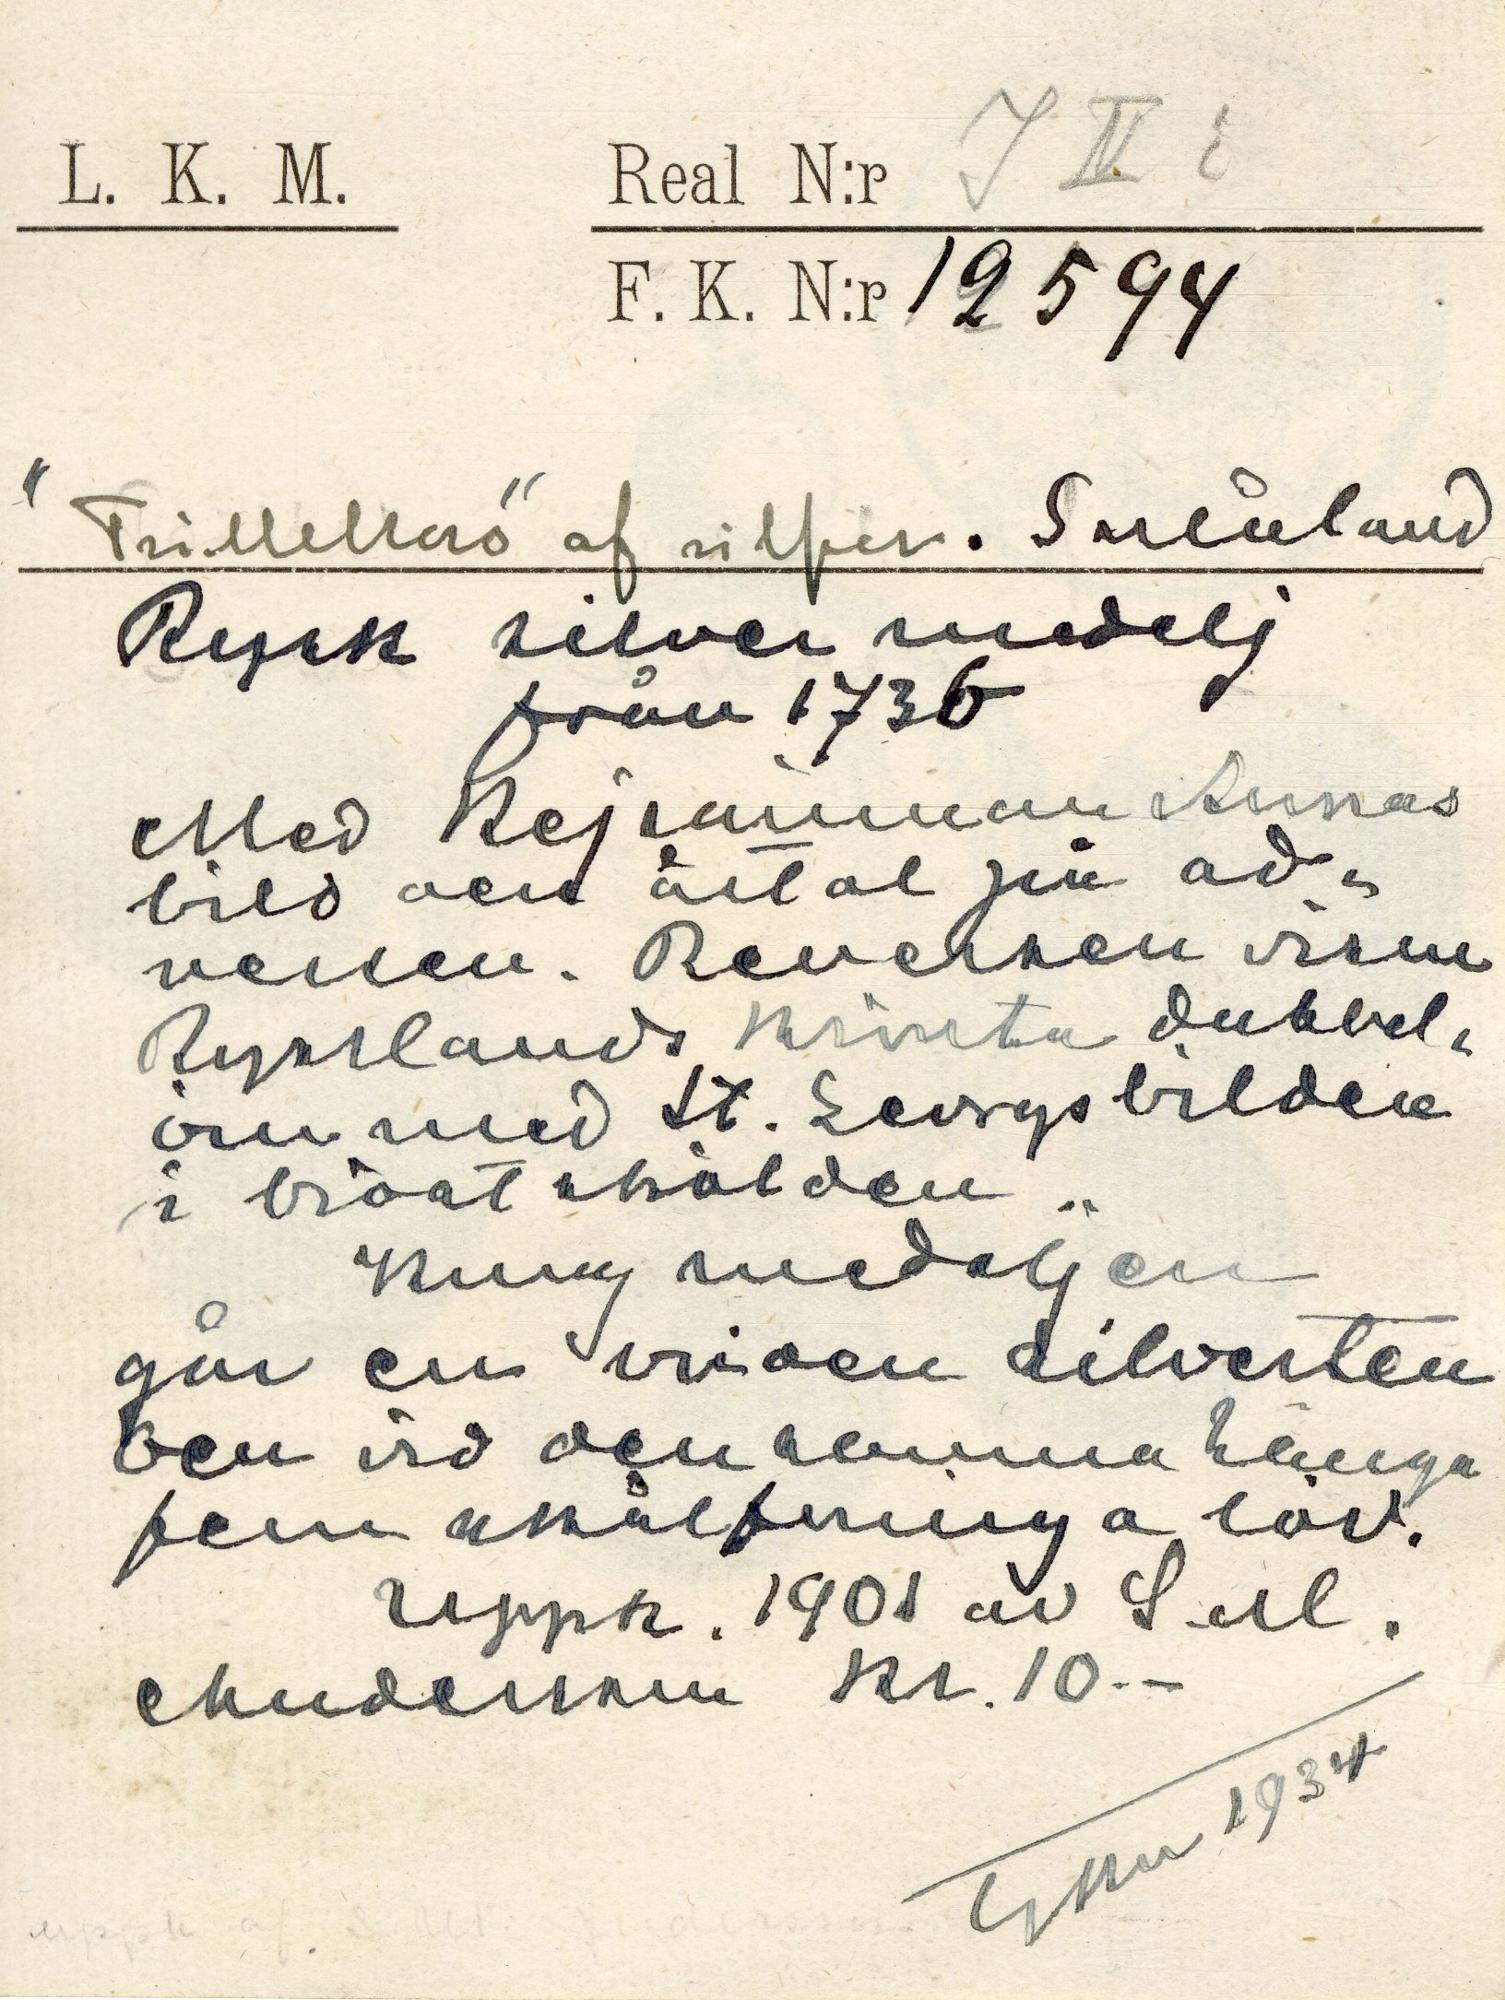 L. K. M.
Real N:r J IV i
F. K. N:r 12594
" " af silfver. Småland
Rysk silver medalj
från 1736
Med Kejsarinnan Annas
bild och årtal på ad-
versen. Reversen visar
Rysslands krönta dubbel-
örn med St. Georgsbilden
i bröstskölden.
Kring medaljen
går en vriden silverten
och vid densamma hänga
fem skålformiga löv.
Uppk. 1901 av S. M.
Andersson Kr. 10.-
1934
uppk af S. M. Andersson